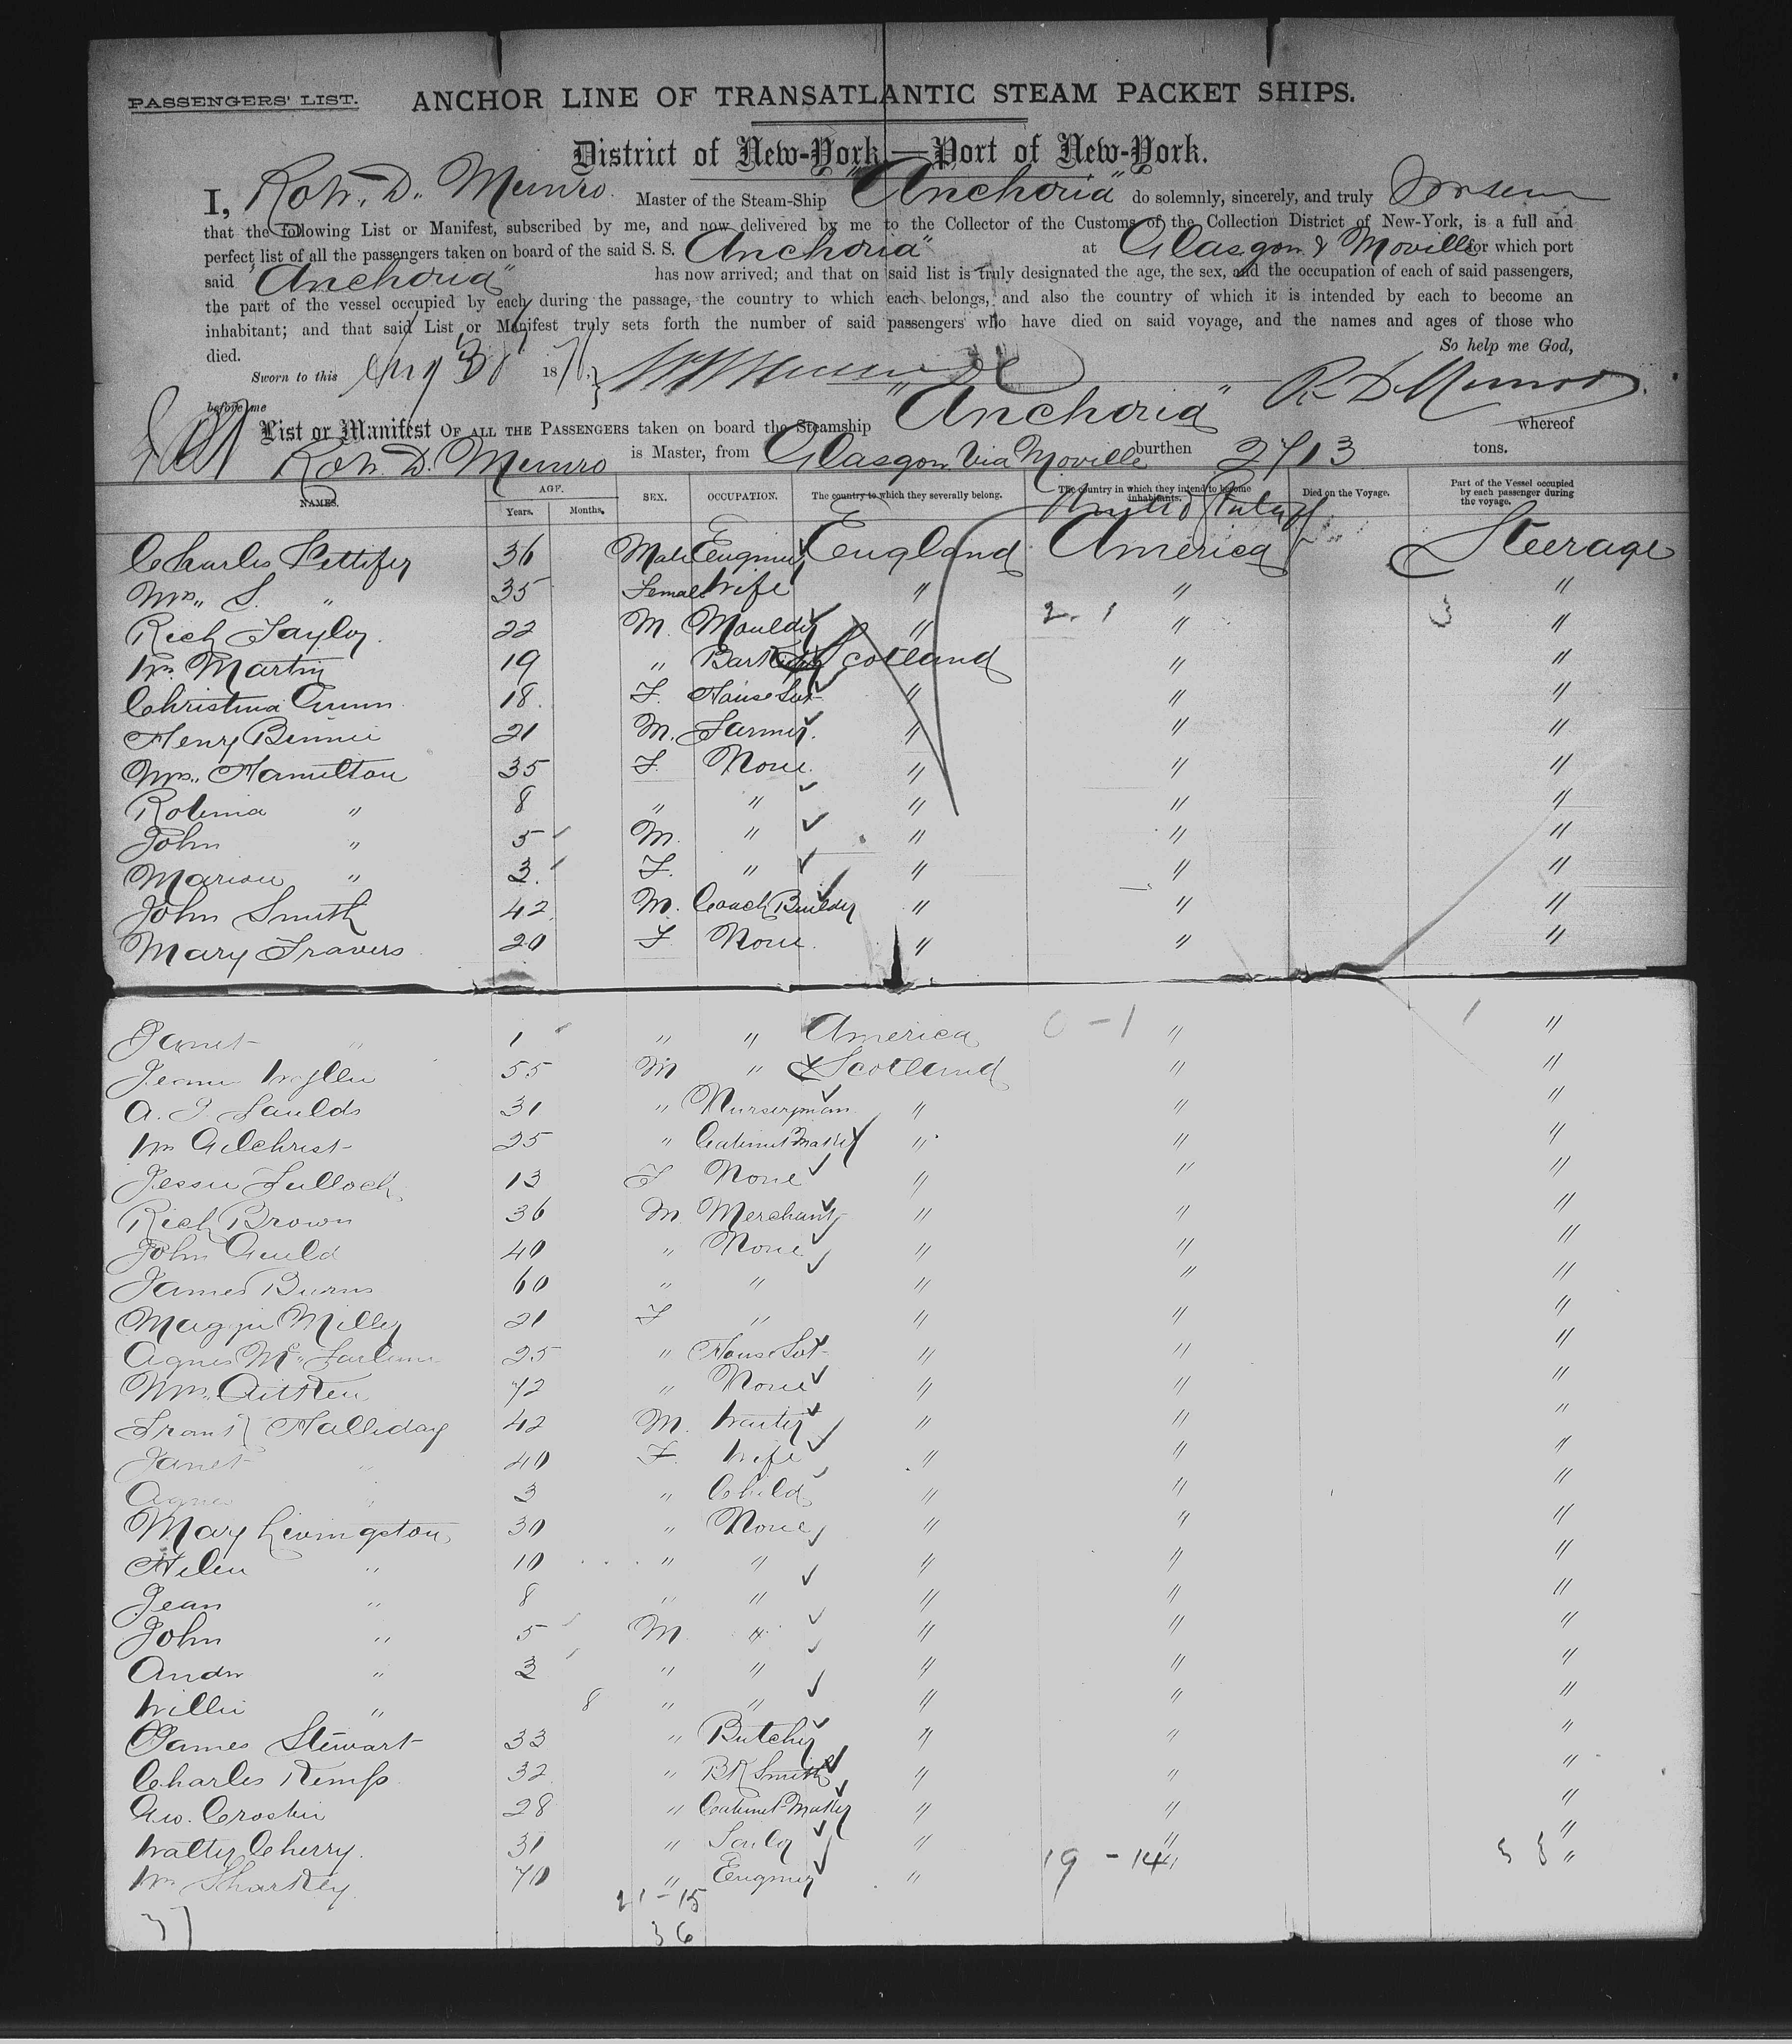 PASSENGERS' LIST. ANCHOR LINE OF TRANSATLANTIC STEAM PACKET SHIPS.
District of New-York—Port of New-York.
I, Robt. D. Munro. Master of the Steam-Ship "Anchoria" do solemnly, sincerely, and truly
that the following List or Manifest, subscribed by me, and now delivered by me to the Collector of the Customs of the Collection District of New-York, is a full and
perfect list of all the passengers taken on board of the said S. S. Anchoria" at Glasgow & Moville for which port
said "Anchoria" has now arrived; and that on said list is truly designated the age, the sex, and the occupation of each of said passengers,
the part of the vessel occupied by each during the passage, the country to which each belongs, and also the country of which it is intended by each to become an
inhabitant; and that said List or Manifest truly sets forth the number of said passengers who have died on said voyage, and the names and ages of those who
died. So help me God,
Sworn to this Aug 18
before me R D Munro
List or Manifest OF ALL THE PASSENGERS taken on board the Steamship "Anchoria" whereof
Robt. D. Munro is Master, from Glasgow Via Moville burthen 2713 tons.
NAMES. AGE. Years. Months. SEX. OCCUPATION. The country to which they severally belong. The country in which they intend to become inhabitants. Died on the Voyage. Part of the Vessel occupied by each passenger during the voyage.
United States of
Charles Pettifer 36 Male Engineer England America Steerage
Mrs. S. " 35 Female Wife " " "
Rich Taylor. 22 M. Moulder " 2. 1 " 3 "
Wm. Martin 19 " Scotland " "
Christina Gunn 18. F. House Svt " " "
Henry Binnie 21 M. Farmer. " " "
Mrs. Hamilton 35 F. None. " " "
Robina " 8 " " " " "
John " 5 M. " " " "
Marion " 3. F. " " " "
John Smith 42. M. Coach Builder " " "
Mary Travers 20 F. None. " " "
Janet " 1 " " America 0-1 " 1 "
Wyllie 55 M " Scotland " "
A. J. Faulds 31 " Nurseryman " " "
Wm Gilchrist 25 " Cabinet Maker " " "
Jessie Tulloch 13 F None " " "
Rich Brown 36 M. Merchant " " "
John Auld 40 " None " " "
James Burns 60 " " " " "
Maggie Miller 21 F " " " "
Agnes McFarlane 25 " House Svt " " "
Mrs. Aitken 72 " None " " "
Frank Halliday 42 M. Waiter " " "
Janet " 40 F. Wife " " "
Agnes " 3 " Child " " "
Mary Livingston 30 " None " " "
Helen " 10 " " " " "
Jean " 8 " " " " "
John " 5 M " " " "
Andw " 3 " " " " "
Willie " 8 " " " " "
James Stewart 33 " Butcher " " "
Charles Kemp. 32 " Bk Smith " " "
Geo. Crosbie 28 " Cabinet Maker " " "
Walter Cherry. 31 " " " "
Wm Sharkey 70 " Engineer " 19 - 14 " "
21-15
37 36